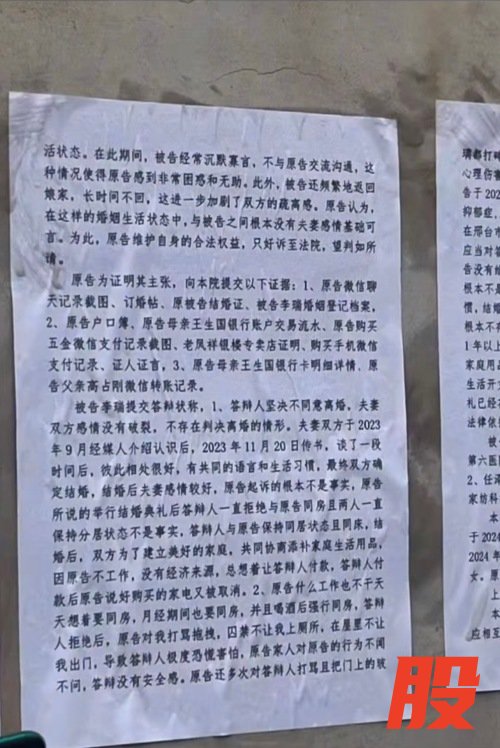 活状态。在此期间，被告经常沉默寡言，不与原告交流沟通，这
种情况使得原告感到非常困惑和无助。此外，被告还频繁地返回
娘家，长时间不回，这进一步加剧了双方的疏离感。原告认为，
在这样的婚姻生活状态中，与被告之间根本没有夫妻感情基础可
言。为此，原告维护自身的合法权益，只好诉至法院，望判如所
请。
原告为证明其主张，向本院提交以下证据：1、原告微信聊
天记录截图、订婚帖、原被告结婚证、被告李瑞婚姻登记档案，
2、原告户口簿、原告母亲王生国银行账户交易流水、原告购买
五金微信支付记录截图、老凤祥银楼专卖店证明、购买手机微信
支付记录、证人证言，3、原告母亲王生国银行卡明细详情、原
告父亲高占刚微信转账记录。
被告李瑞提交答辩状称，1、答辩人坚决不同意离婚。夫妻
双方感情没有破裂，不存在判决离婚的情形。夫妻双方于2023
年9月经媒人介绍认识后，2023年11月20日传书，谈了一段
时间后，彼此相处很好，有共同的语言和生活习惯，最终双方确
定结婚，结婚后夫妻感情较好，原告起诉的根本不是事实，原告
所说的举行结婚典礼后答辩人一直拒绝与原告同房且两人一直
保持分居状态不是事实，答辩人与原告保持同居状态且同床，结
婚后，双方为了建立美好的家庭，共同协商添补家庭生活用品，
因原告不工作，没有经济来源，总想着让答辩人付款，答辩人付
款后原告说好购买的家电又被取消。2、原告什么工作也不干天
天想着要同房，月经期间也要同房，并且喝酒后强行同房，答辩
人拒绝后，原告对我打骂拖拽，囚禁不让我上厕所，在屋里不让
我出门，导致答辩人极度恐慌害怕，原告家人对原告的行为不闻
不问，答辩没有安全感。原告还多次对答辩人打骂且把门上的玻
璃都打碎
心理伤害
告于202
抑郁症，
在邢台市
应当对答
告没有给
根本不是
惯，结婚
根本不存
1年以上
家庭用品
生活开支
礼已经在
法律依据
被告
第六医院
2、任泽
家纺粉
本
于2024
2024年
女。原
上
本
应相互
股